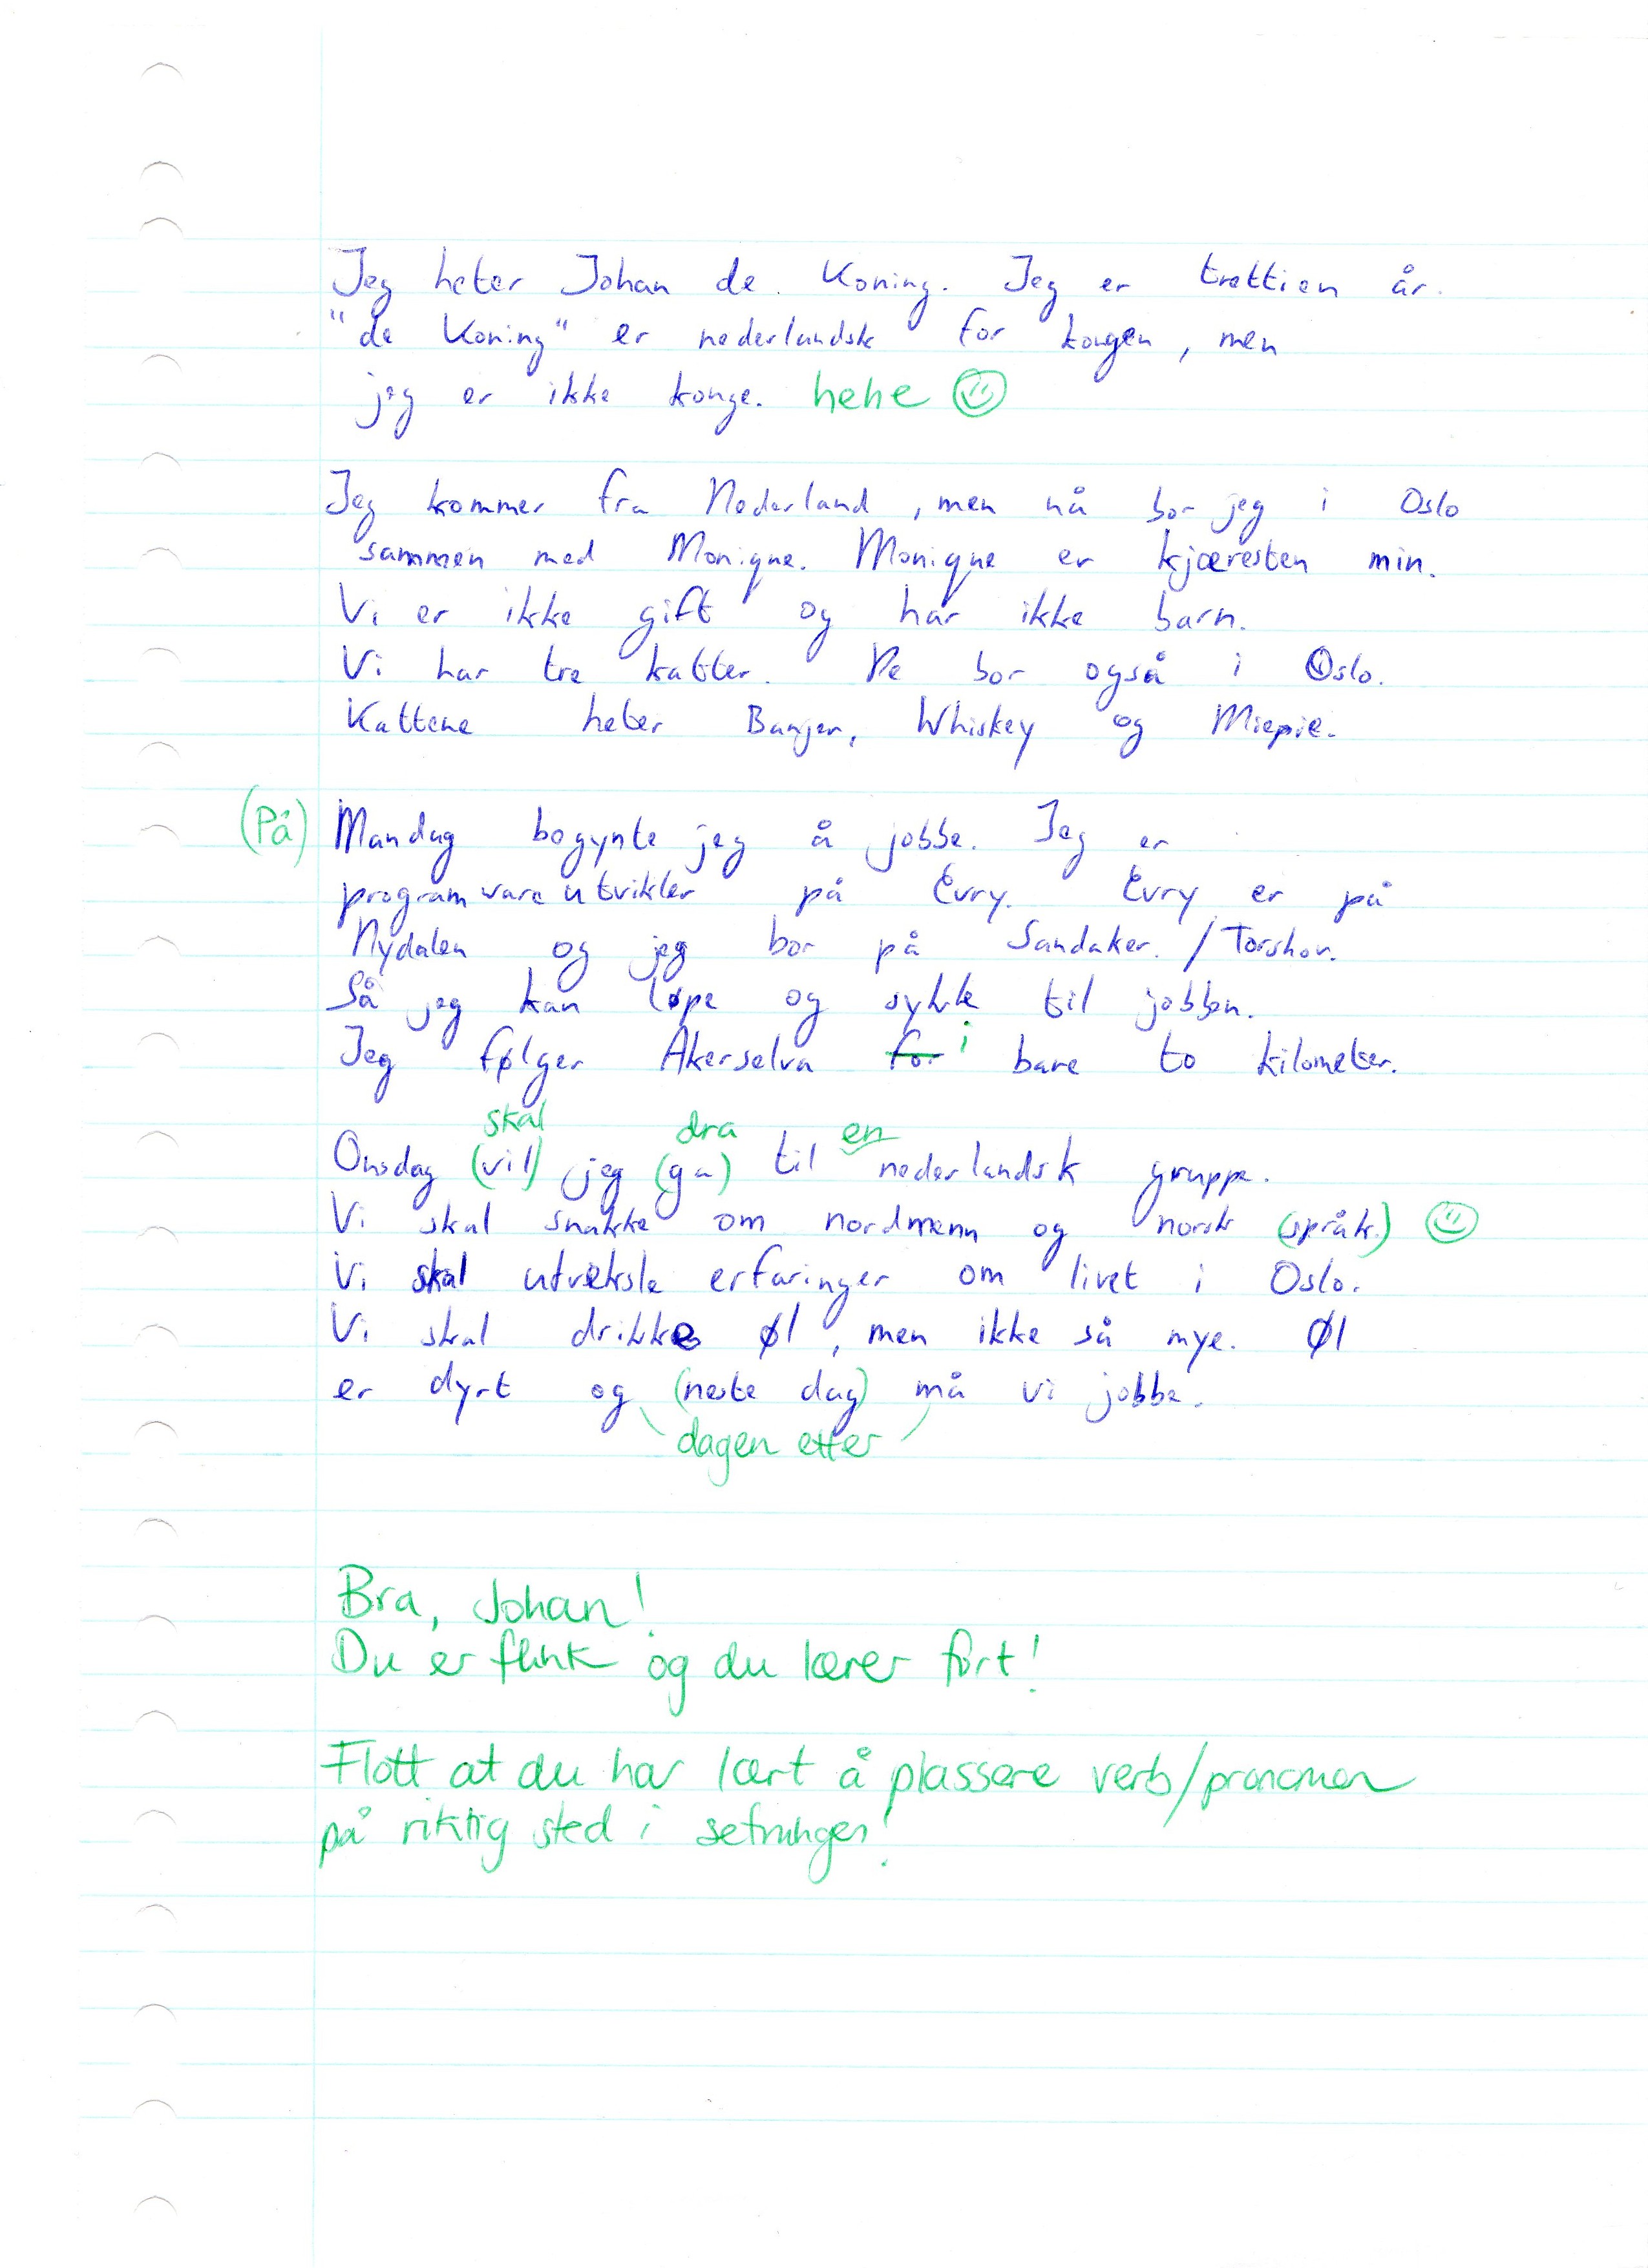 Jeg heter Johan de Koning. Jeg er trettien år.
"de Koning" er nederlandsk for kongen, men
jeg er ikke konge. hehe
Jeg kommer fra Nederland, men nå bor jeg i Oslo
sammen med Monique. Monique er kjæresten min.
Vi er ikke gift og har ikke barn.
Vi har tre katter. De bor også i Oslo.
Kattene heter Banjer, Whiskey og Miepie.
(På) Mandag begynte jeg å jobbe. Jeg er
programvareutvikler på Evry. Evry er på
Nydalen og jeg bor på Sandaker. / Torshov.
Så jeg kan løpe og sykle til jobben.
Jeg følger Akerselva for i bare to kilometer.
skal dra en
Onsdag (vil) jeg (ga) til nederlandsk gruppe.
Vi skal snakke om nordmenn og norsk (språk.)
Vi skal utveksle erfaringer om livet i Oslo.
Vi skal drikke øl, men ikke så mye. Øl
er dyrt og (neste dag) må vi jobbe.
dagen etter
Bra, Johan!
Du er flink og du lærer fort!
Flott at du har lært å plassere verb/pronomen
på riktig sted i setninger!